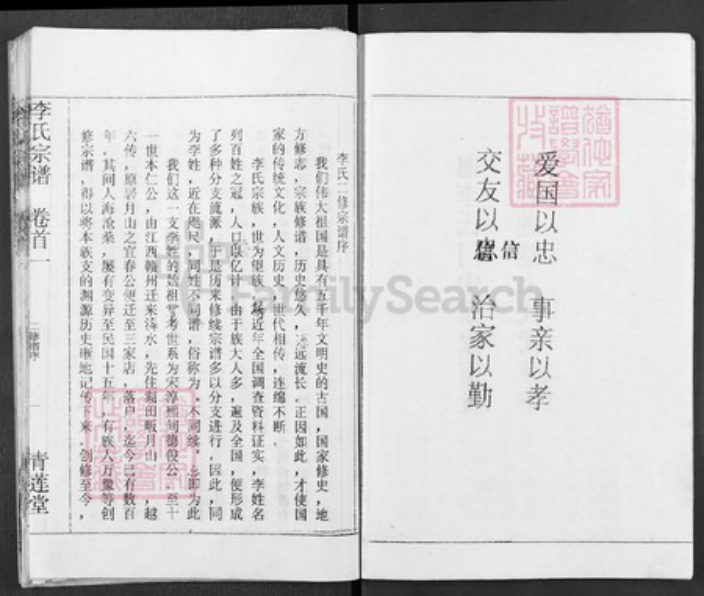 爱国以忠 事亲以孝
交友以信 治家以勤
信
李氏二修宗谱序
我们伟大祖国是具有五千年文明史的古国，国家修史，地
方修志，宗族修谱，历史悠久，远流长。正因如此，才使国
家的传统文化，人文历史，世代相传，连绵不断。
李氏宗族，世为望族，据近年全国调查资料证实，李姓名
列百姓之冠，人口以亿计，由于族大人多，遍及全国，便形成
了多种分支流派，于是历来修续宗谱多以分支进行。因此，同
为李姓，近在咫尺，同姓不同谱，俗称为，不同续，即为此
我们这一支李姓的始祖考世系为宋淳熙间德俊公，至十
一世本仁公，由江西赣州迁来浠水，先住蔡田畈月山，越
六传，原居月山之宜春公便迁至三家店，落户，迄今已有数百
年，其间人海沧桑，屡有变异至民国十五年，有族人万鳌等创
修宗谱，得以将本族支的渊源历史晰地记传下来。创修至今，
李氏宗谱 卷首一
二修谱序
一
青莲堂
FamilySearch